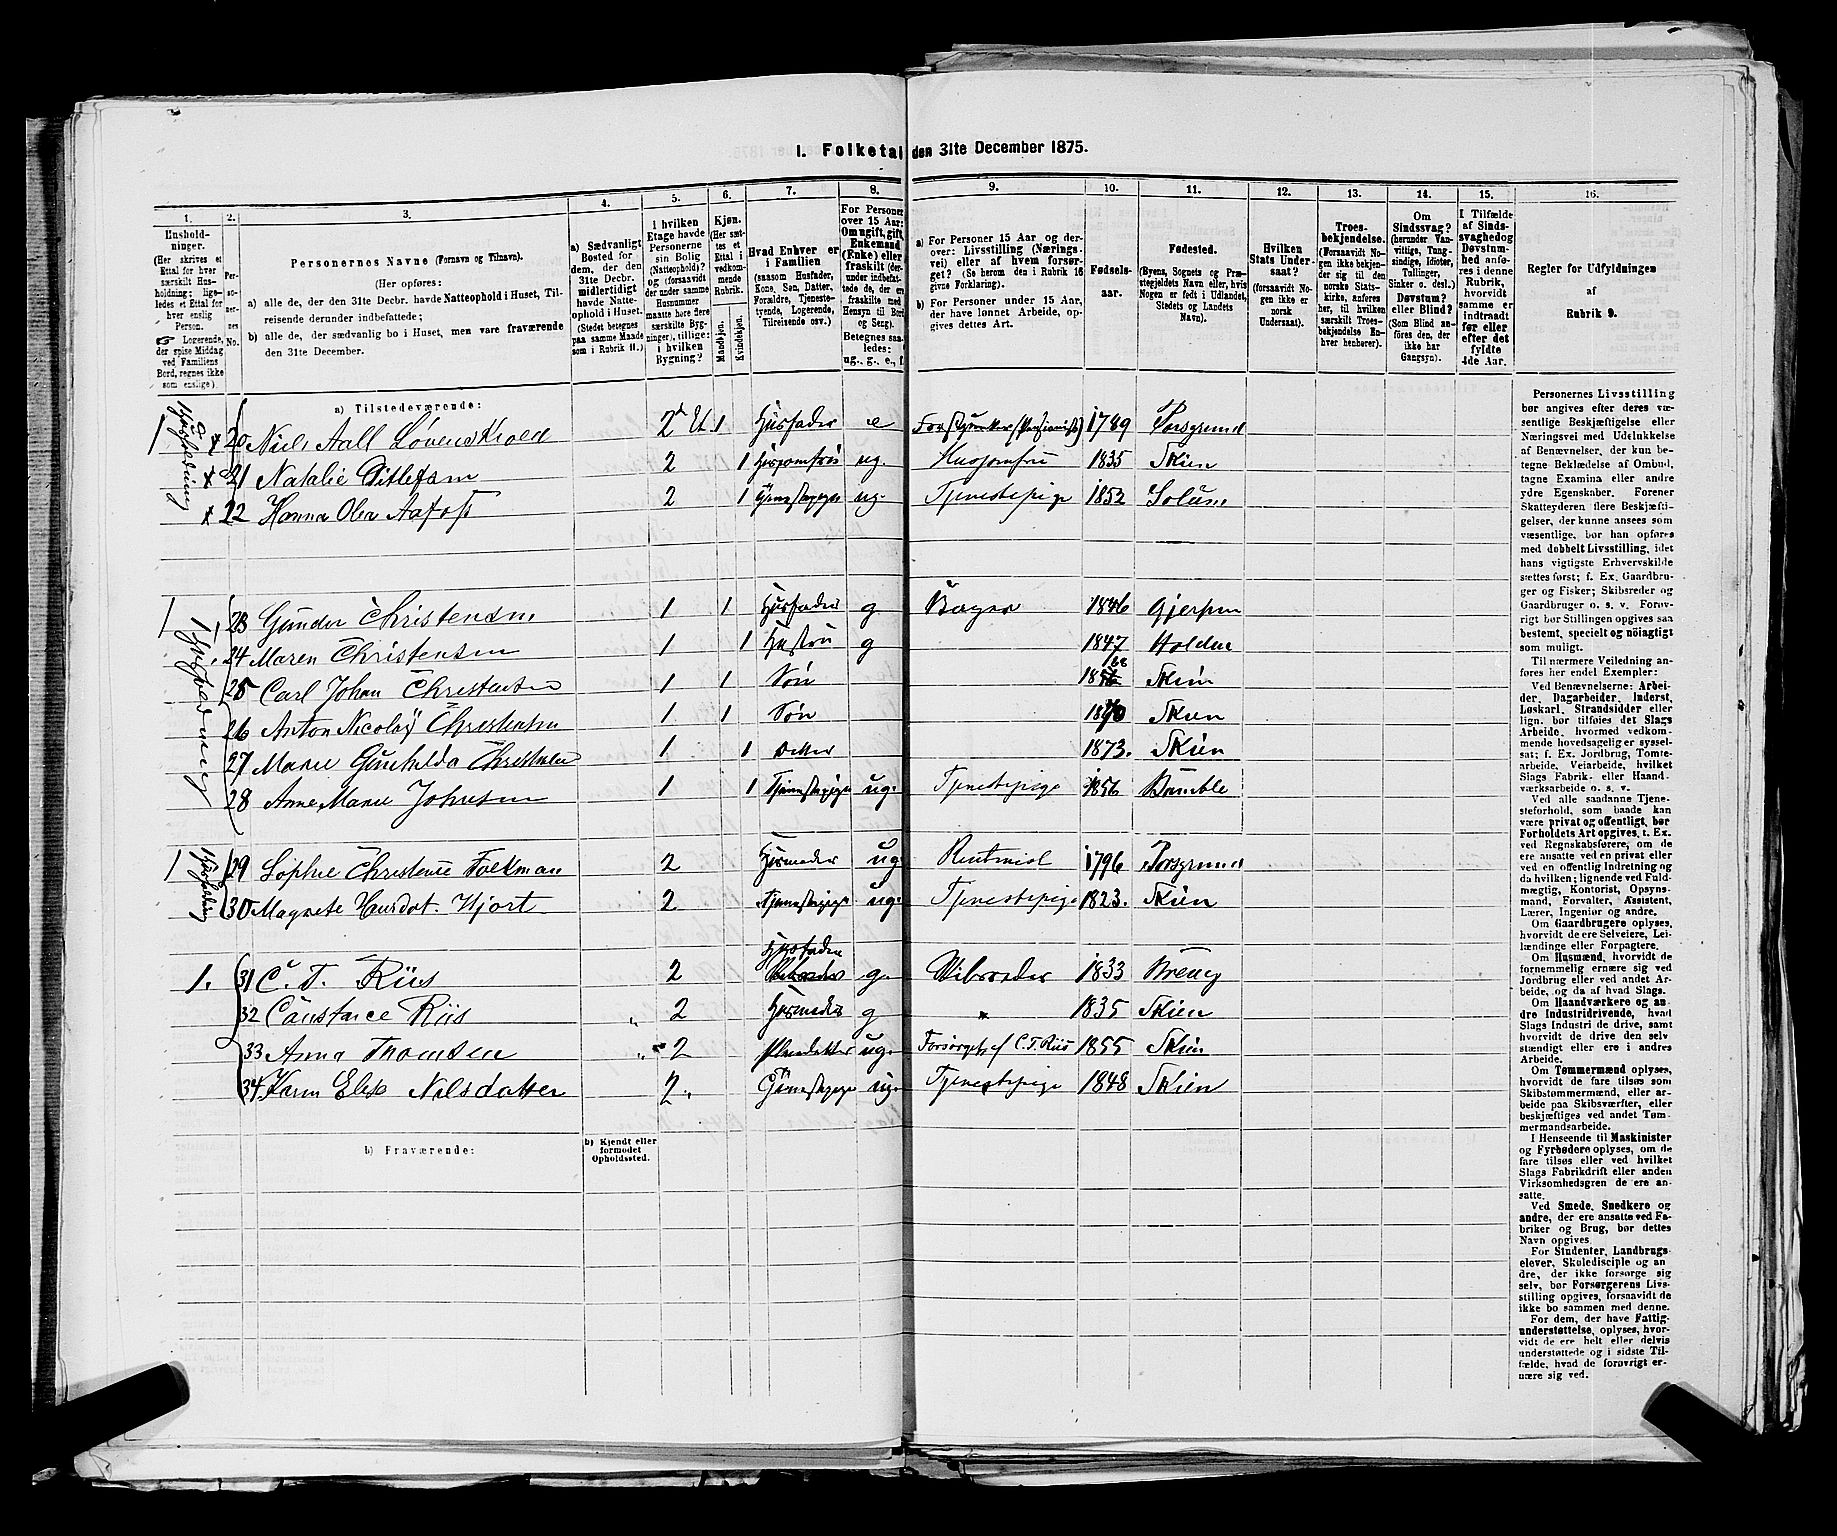 1. Folketal den 31te December 1875.
1. 2. 3. 4. 5. 6. 7. 8. 9. 10. 11. 12. 13. 14. 15. 16.
Husholdninger.
(Her skrives et Ettal for hver særskilt Husholdning; ligeledes et Ettal for hver enslig Person.
☞ Logerende, der spise Middag ved Familiens Bord, regnes ikke som enslige).
Personernes No.
Personernes Navne (Fornavn og Tilnavn).
(Her opføres:
a) alle de, der den 31te Decbr. havde Natteophold i Huset, Tilreisende derunder indbefattede;
b) alle de, der sædvanlig bo i Huset, men vare fraværende den 31te December.
a) Sædvanligt Bosted for dem, der den 31te Decbr. midlertidigt havde Natteophold i Huset. (Stedet betegnes paa samme Maade som i Rubrik 11.)
I hvilken Etage havde Personerne sin Bolig (Natteophold)?
Kjøn. (Her sættes et Ettal i vedkommende Rubrik.
Mandkjøn. Kvindekjøn.
Hvad Enhver er i Familien
(saasom Husfader, Kone, Søn, Datter, Forældre, Tjenestetyende, Logerende, Tilreisende osv.)
For Personer over 15 Aar: Om ugift, gift, Enkemand (Enke) eller fraskilt
Betegnes saaledes: ug., g., e., f.
a) For Personer 15 Aar og derover: Livsstilling (Næringsvei) eller af hvem forsørget? (Se herom den i Rubrik 16 givne Forklaring).
b) For Personer under 15 Aar, der have lønnet Arbeide, opgives dettes Art.
Fødselsaar.
Fødested.
(Byens, Sognets og Præstegjeldets Navn eller, hvis Nogen er født i Udlandet, Stedets og Landets Navn).
Hvilken Stats Undersaat?
(forsaavidt Nogen ikke er norsk Undersaat).
Troesbekjendelse.
(Forsaavidt Nogen ikke bekjender sig til den norske Statskirke, anføres her, til hvilken særskilt Troesbekjendelse Enhver henhører).
Om Sindssvag? (herunder Vanvittige, Tungsindige, Idioter, Tullinger, Sinker o. desl.) Døvstum? eller Blind? (Som Blind anføres den, der ikke har Gangsyn).
I Tilfælde af Sindssvaghed og Døvstumhed anføres i denne Rubrik, hvorvidt samme er indtraadt før eller efter det fyldte 4de Aar.
Regler for Udfyldningen af Rubrik 9.
a) Tilstedeværende:
1 20 Niels Aall Løvenskiold 2 1 Husfader e Pensionist 1789 Porsgrund
21 Natalie Ditlefsen 2 1 Husjomfru ug. Husjomfru 1835 Skien
22 Hanna Olea 2 1 Tjenestepige ug. Tjenestepige 1852 Solum
1 23 Gunder Christensen 1 1 Husfader g Bager 1846 Gjerpen
24 Maren Christensen 1 1 Hustru g 1847 Holden
25 Carl Johan Christensen 1 1 Søn Skien
26 Anton Nicolay Christensen 1 1 Søn 1870 Skien
27 Maren Gunhilda Christensen 1 1 Datter 1873. Skien
28 Anne Marie Johnsen 1 1 Tjenestepige ug. Tjenestepige 1856 Bamble
1 29 Sophie Christence 2 Husmoder ug 1796 Porsgrund
30 Magrete Hansdat. Hjort 2 Tjenestepige ug. Tjenestepige 1823. Skien
1. 31 C. T. Riis 2 Husfader g. 1833 Brevig
32 Constance Riis 2 Husmoder g " 1835 Skien
33 Anna Thomsen 2 Pleiedatter ug. Forsørget af C. T. Riis 1855 Skien
34 Karen Elise Nilsdatter 2 Tjenestepige ug. Tjenestepige 1848 Skien
b) Fraværende:
b) Kjendt eller formodet Opholdssted.
Personernes Livsstilling
bør angives efter deres væ-
sentlige Beskjæftigelse eller
Næringsvei med Udelukkelse
af Benævnelser, der kun be-
tegne Beklædelse af Ombud,
tagne Examina eller andre
ydre Egenskaber. Forener
Skatteyderen flere Beskjæfti-
gelser, der kunne ansees som
væsentlige, bør han opføres
med dobbelt Livsstilling, idet
hans vigtigste Erhvervskilde
sættes først; f. Ex. Gaardbru-
ger og Fisker; Skibsreder og
Gaardbruger o. s. v. Forøv-
rigt bør Stillingen opgives saa
bestemt, specielt og nöiagtigt
som muligt.
Til nærmere Veiledning an-
føres her endel Exempler:
Ved Benævnelserne: Arbei-
der, Dagarbeider, Inderst,
Løskarl, Strandsidder eller
lign. bør tilføies det Slags
Arbeide, hvormed vedkom-
mende hovedsagelig er syssel-
sat; f. Ex. Jordbrug, Tomte-
arbeide, Veiarbeide, hvilket
Slags Fabrik- eller Haand-
værksarbeide o. s. v.
Ved alle saadanne Tjene-
steforhold, som baade kan
være privat og offentligt, bør
Forholdets Art opgives, t. Ex.
ved Regnskabsførere, om de
ere ansatte ved en privat eller
ved en offentlig Indretning og
da hvilken; lignende ved Fuld-
mægtig, Kontorist, Opsyns-
mand, Forvalter, Assistent,
Lærer, Ingeniør og andre.
Om Gaardbrugere oplyses,
hvorvidt de ere Selveiere, Lei-
lændinge eller Forpagtere.
Om Husmænd, hvorvidt de
fornemmelig ernære sig ved
Jordbrug eller ved andet Ar-
beide, og da af hvad Slags.
Om Haandværkere og an-
dre Industridrivende, hvad
Slags Industri de drive, samt
hvorvidt de drive den selv-
stændigt eller ere i andres
Arbeide.
Om Tømmermænd oplyses,
hvorvidt de fare tilsøs som
Skibstømmermænd, eller ar-
beide paa Skibsværfter, eller
beskjæftiges ved andet Tøm-
mermandsarbeide.
I Henseende til Maskinister
og Fyrbødere oplyses, om de
fare tilsøs eller ved hvilket
Slags Fabrikdrift eller anden
Virksomhedsgren de ere an-
satte.
Ved Smede, Snedkere og
andre, der ere ansatte ved Fa-
briker og Brug, bør dettes
Navn opgives.
For Studenter, Landbrugs-
elever, Skoledisciple og an-
dre, der ikke forsørge sig
selv, bør Forsørgerens Livs-
stilling opgives, forsaavidt de
ikke bo sammen med denne.
For dem, der have Fattig-
understøttelse, oplyses, hvor-
vidt de ere helt eller delvis
understøttede og i sidste Til-
fælde, hvad de forøvrigt er-
nære sig ved.